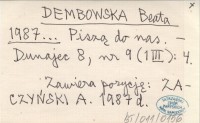 DEMBOWSKA Beata
1987... Piszą do nas. –
Dunajec 8, nr 9 (1 III): 4.
Zawiera pozycję: ZA-
CZYŃSKI A. 1987d.